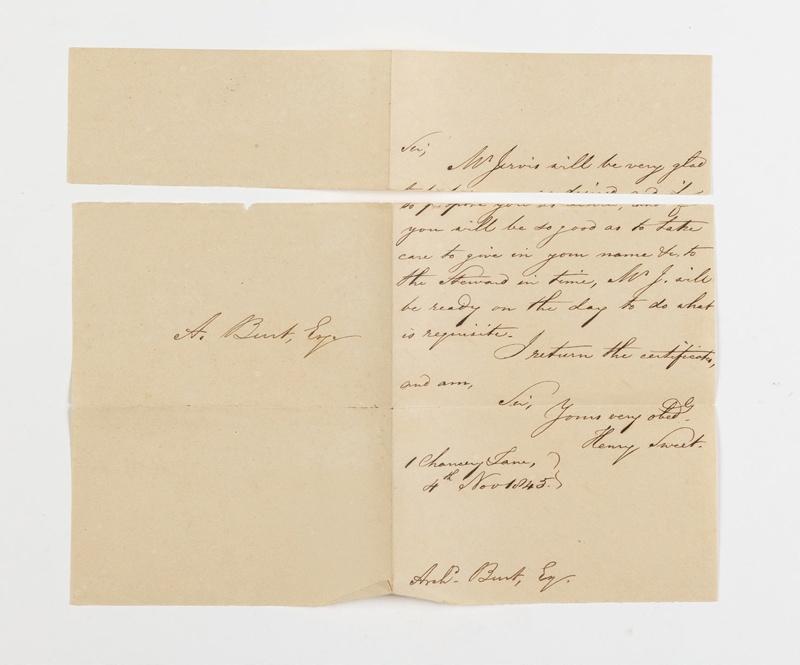 A. Burt, Esq.
Sir,
Mr. Jervis will be very glad
to propose you as desired, and if
you will be so good as to take
care to give in your name &c. to
the Steward in time, Mr. J. will
be ready on the day to do what
is requisite.
I return the certificate,
and am,
Sir,
Yours very obedt.
Henry Sweet.
1 Chancery Lane,
4th Nov 1845.
Archd. Burt, Esq.